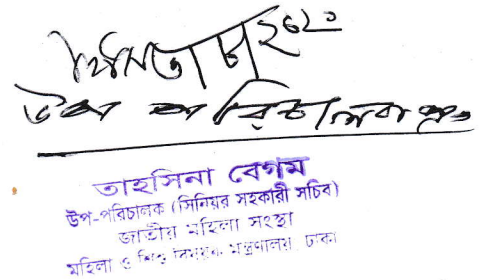 উপ পরিচালক
তাহসিনা বেগম
উপ-পরিচালক (সিনিয়র সহকারী সচিব)
জাতীয় মহিলা সংস্থা
মহিলা ও শিশু বিষয়ক মন্ত্রণালয়, ঢাকা